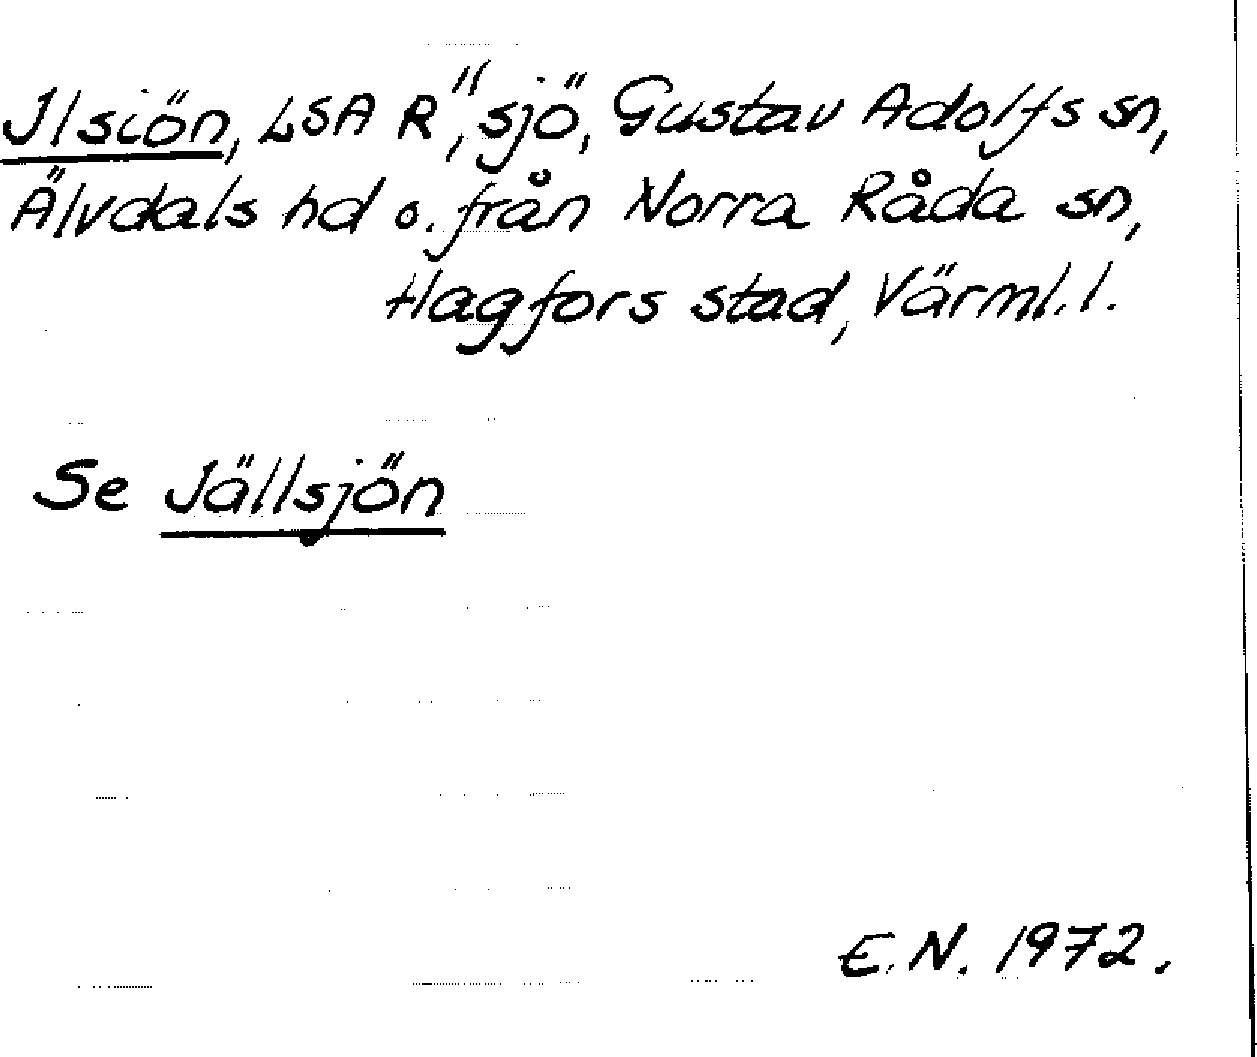 Jlsiön, LSA R", sjö, Gustav Adolfs sn,
Älvdals hd o. från Norra Råda sn,
Hagfors stad, Värml. l.
Se Jällsjön
E.N. 1972.